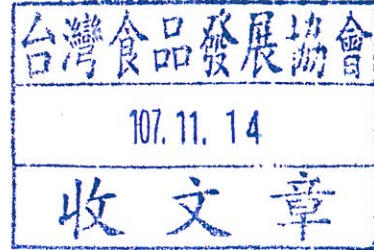 台灣食品發展協會
107.11.14
收文章